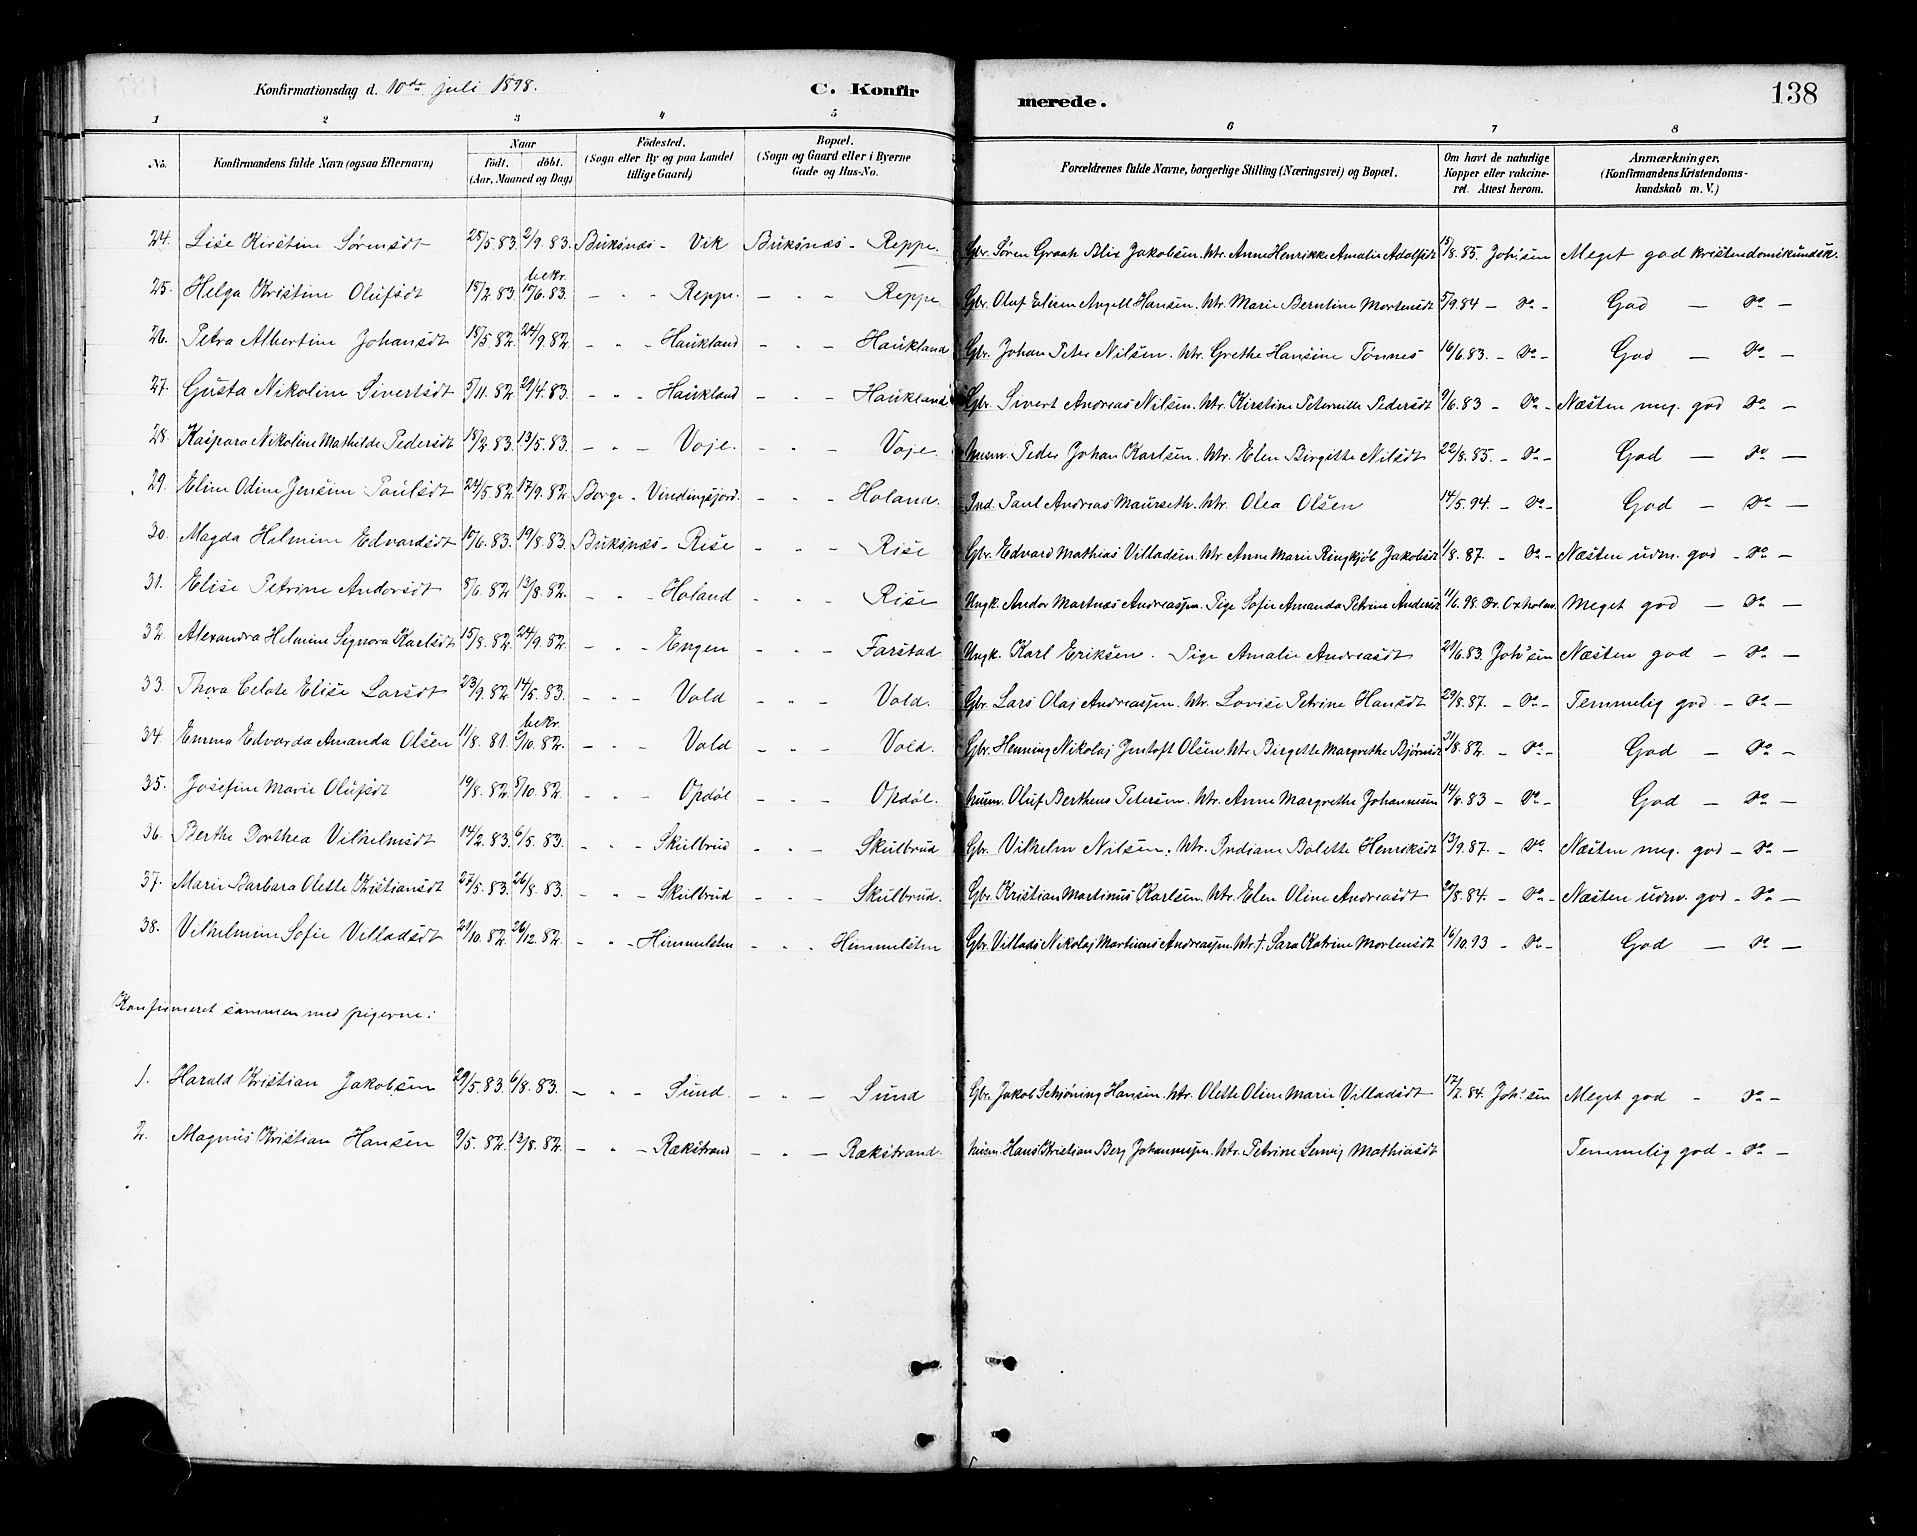 Konfirmationsdag d. 10de juli 1898.
C. Konfir
merede.
138
1 2 3 4 5 6 7 8
No. Konfirmandens fulde Navn (ogsaa Efternavn) Naar födt. döbt. (Aar, Maaned og Dag) Födested. (Sogn eller By og paa Landet tillige Gaard) Bopæl. (Sogn og Gaard eller i Byerne Gade og Hus-No. Forældrenes fulde Navne, borgerlige Stilling (Næringsvei) og Bopæl. Om havt de naturlige Kopper eller vakcineret. Attest herom. Anmærkninger. (Konfirmandens Kristendomskundskab m. V.)
24. Lise Kirstine Sørensdt 28/5.83. 2/9.83. Buksnæs - Vik Buksnæs - Reppe. Gbr. Søren Graah Blix Jakobsen. Htr. Anne Henrikke Amalie Adolfsdt 15/8.85. Joh'sen Meget god kristendomskundsk.
25. Helga Kristine Olufsdt 18/2.83. bekr. 17/6.83. - " - Reppe. - " - Reppe Gbr. Oluf Elisen Angell Hansen. Htr. Marie Berntine Mortensdt 5/9.84 - Do - God - Do -
26. Petra Albertine Johansdt 18/5.82. 24/9.82. - " - Haukland - " - Haukland Gbr. Johan Peter Nilsen. Htr. Grethe Hansine Tønnes 16/6.83. - Do - God - Do -
27. Gusta Nikoline Sivertsdt 5/11.82. 29/4.83. - " - Haukland - " - Haukland Gbr. Sivert Andreas Nilsen. Htr. Kirstine Peternille Pedersdt 9/6.83 - Do - Næsten meg. god Do -
28. Kaspara Nikoline Mathilde Pedersdt 18/2.83. 13/5.83. - " - Voje. - " - Voje Husm. Peder Johan Karlsen. Htr. Elen Birgitte Nilsdt 22/8.85. - Do - God - Do -
29. Eline Odine Jensine Paulsdt 24/5.82. 17/9.82. Borge - Vindingsjord. - " - Holand. Ind. Paul Andreas Maurseth. Htr. Olea Olsen 14/5.94. - Do - God - Do -
30. Magda Helmine Edvardsdt 15/6.83. 19/8.83. Buksnæs - Rise - " - Rise Gbr. Edvard Mathias Villadsen. Htr. Anne Marie Ringkjøb Jakobsdt 1/8.87. - Do - Næsten udm. god - Do -
31. Elise Petrine Andorsdt 8/6.82. 13/8.82. - " - Holand - " - Rise Ungk. Andor Martnæs Andreassen. Pige Sofie Amanda Petrine Andersdt 11/6.98. Dr. Oxholm. Meget god - Do -
32. Alexandra Helmine Signora Karlsdt 15/8.82. 24/9.82. - " - Engen - " - Farstad Ungk. Karl Eriksen. Pige Amalie Andreasdt 20/6.83. Joh'sen Næsten god - Do -
33. Thora Celote Elise Larsdt 23/9.82. 14/5.83. - " - Vold - " - Vold. Gbr. Lars Olaj Andreassen. Htr. Lovise Petrine Hansdt 29/8.87. - Do - Temmelig god - Do -
34. Emma Edvarda Amanda Olsen 11/8.81. bekr. 9/10.82. - " - Vold - " - Vold. Gbr. Henning Nikolaj Jentoft Olsen. Htr. Birgitte Margrethe Bjørnsdt 21/8.82. - Do - God - Do -
35. Josefine Marie Olufsdt 19/8.82. 8/10.82. - " - Opdøl - " - Opdøl. Husm. Oluf Bertheus Petersen. Htr. Anne Margrethe Johannesen 14/8.83 - Do - God - Do -
36. Berthe Dorthea Vilhelmsdt 14/2.83. 6/5.83. - " - Skulbrud - " - Skulbrud Gbr. Vilhelm Nilsen. Htr. Indiane Bolette Henriksdt 13/9.87. - Do Næsten meg. god - Do -
37. Marie Barbara Olette Kristiansdt 27/5.83. 26/8.83. - " - Skulbrud - " - Skulbrud. Gbr. Kristian Martinus Karlsen. Htr. Elen Oline Andreasdt 20/8.84. - Do - Næsten udm. god - Do -
38. Vilhelmine Sofie Villadsdt 20/10.82. 26/12.82. - " - Himmelsten - " - Himmelsten Gbr. Villads Nikolaj Martinus Andreassen Htr. † Sara Katrine Mortensdt 16/10.93 - Do - God - Do -
Konfirmeret sammen med pigerne:
1. Harald Kristian Jakobsen 29/5.83. 6/8.83. - " - Sund. - " - Sund Gbr. Jakob Schjøning Hansen. Htr. Olette Oline Marie Villadsdt 17/7.84. Joh'sen Meget god - Do -
2. Magnus Kristian Hansen 9/5.82. 13/8.82. - " - Rækstrand - " - Rækstrand. Husm. Hans Kristian Berg Johannessen. Htr. Petrine Mathiasdt Temmelig god - Do -